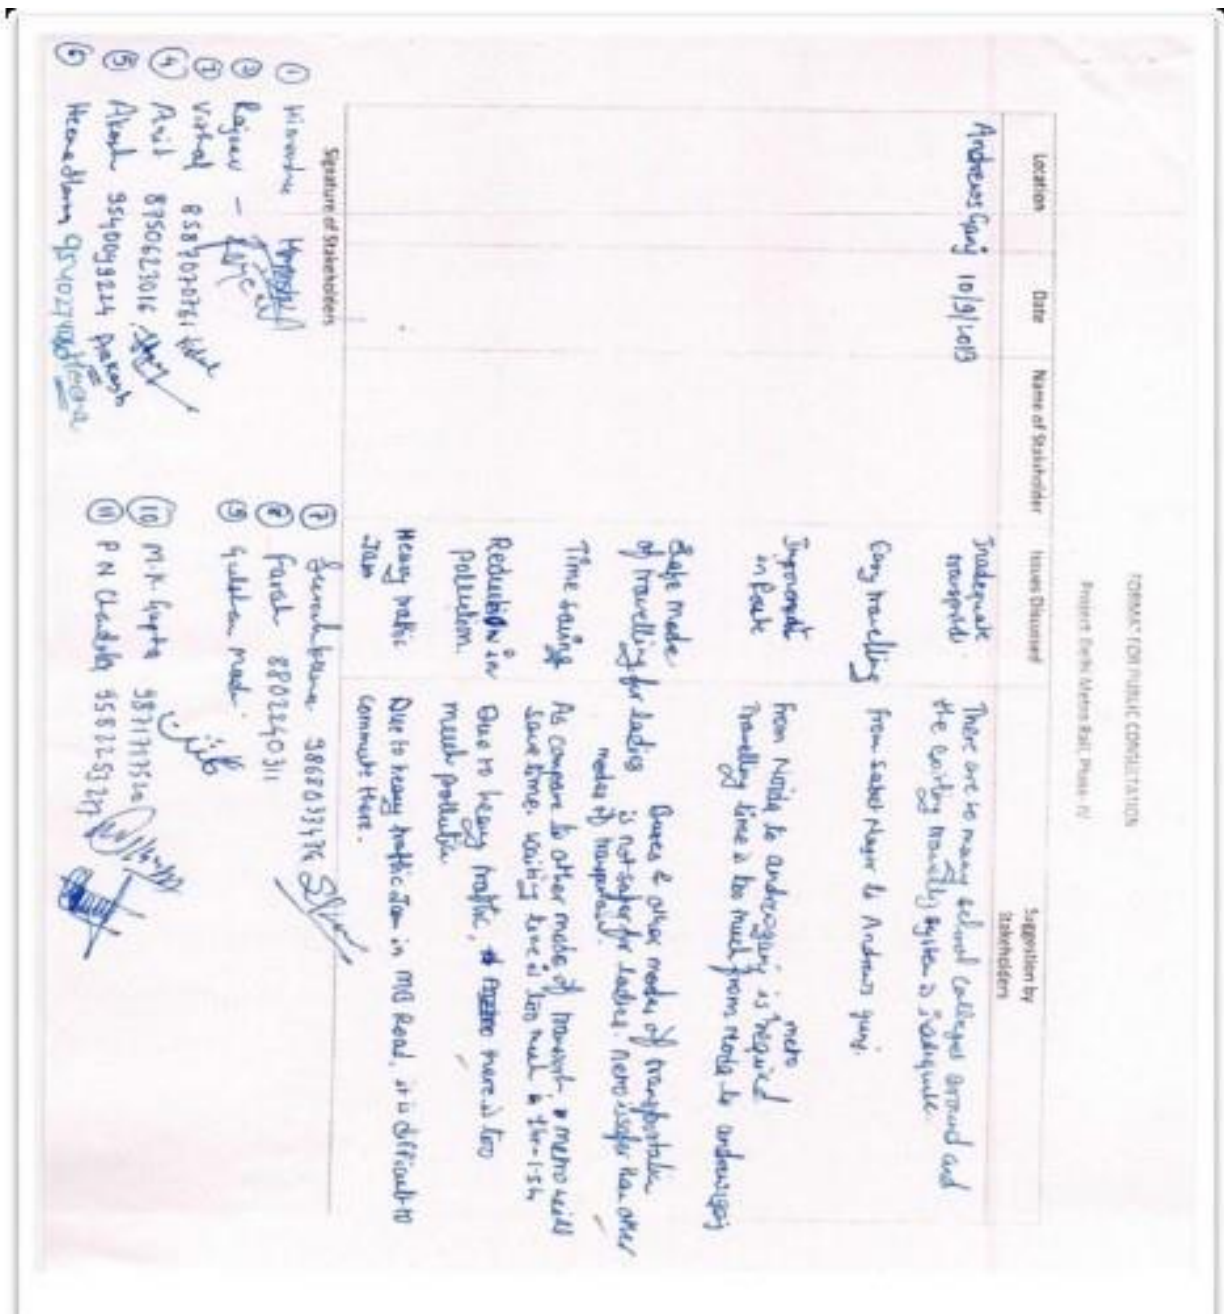 FORMAT FOR PUBLIC CONSULTATION
Project: Delhi Metro Rail, Phase-IV
Location Date Name of Stakeholder Issues Discussed Suggestion by Stakeholders
Andrews Ganj 10/9/2013
Inadequate transport.
There are so many school colleges around and
the existing travelling system is inadequate.
Easy travelling
From Nagar to Andrews ganj.
Improvement
in Route
From Noida to andrewsganj is metro required
Travelling time is too much from Noida to andrewsganj
Safe mode
of travelling for ladies
Buses & other modes of transportation
is not safer for ladies. metro is safer than other
modes of transport.
Time saving
As compare to other mode of transport, metro will
save time. waiting time is too much
Reduction in
pollution
Due to heavy traffic, there is too
much pollution
Heavy traffic
Jam
Due to heavy traffic Jam in MB Road, it is difficult to
commute there.
Signature of Stakeholders
①
② Rajeev -
③ Vishal 8587070761
④ 8750623016
⑤ Akash 9540099224 Prakash
⑥
⑦ 9868033476
⑧ Farah 8802240311
⑨ Gulshan
⑩ M.K Gupta
⑪ P N Chadha